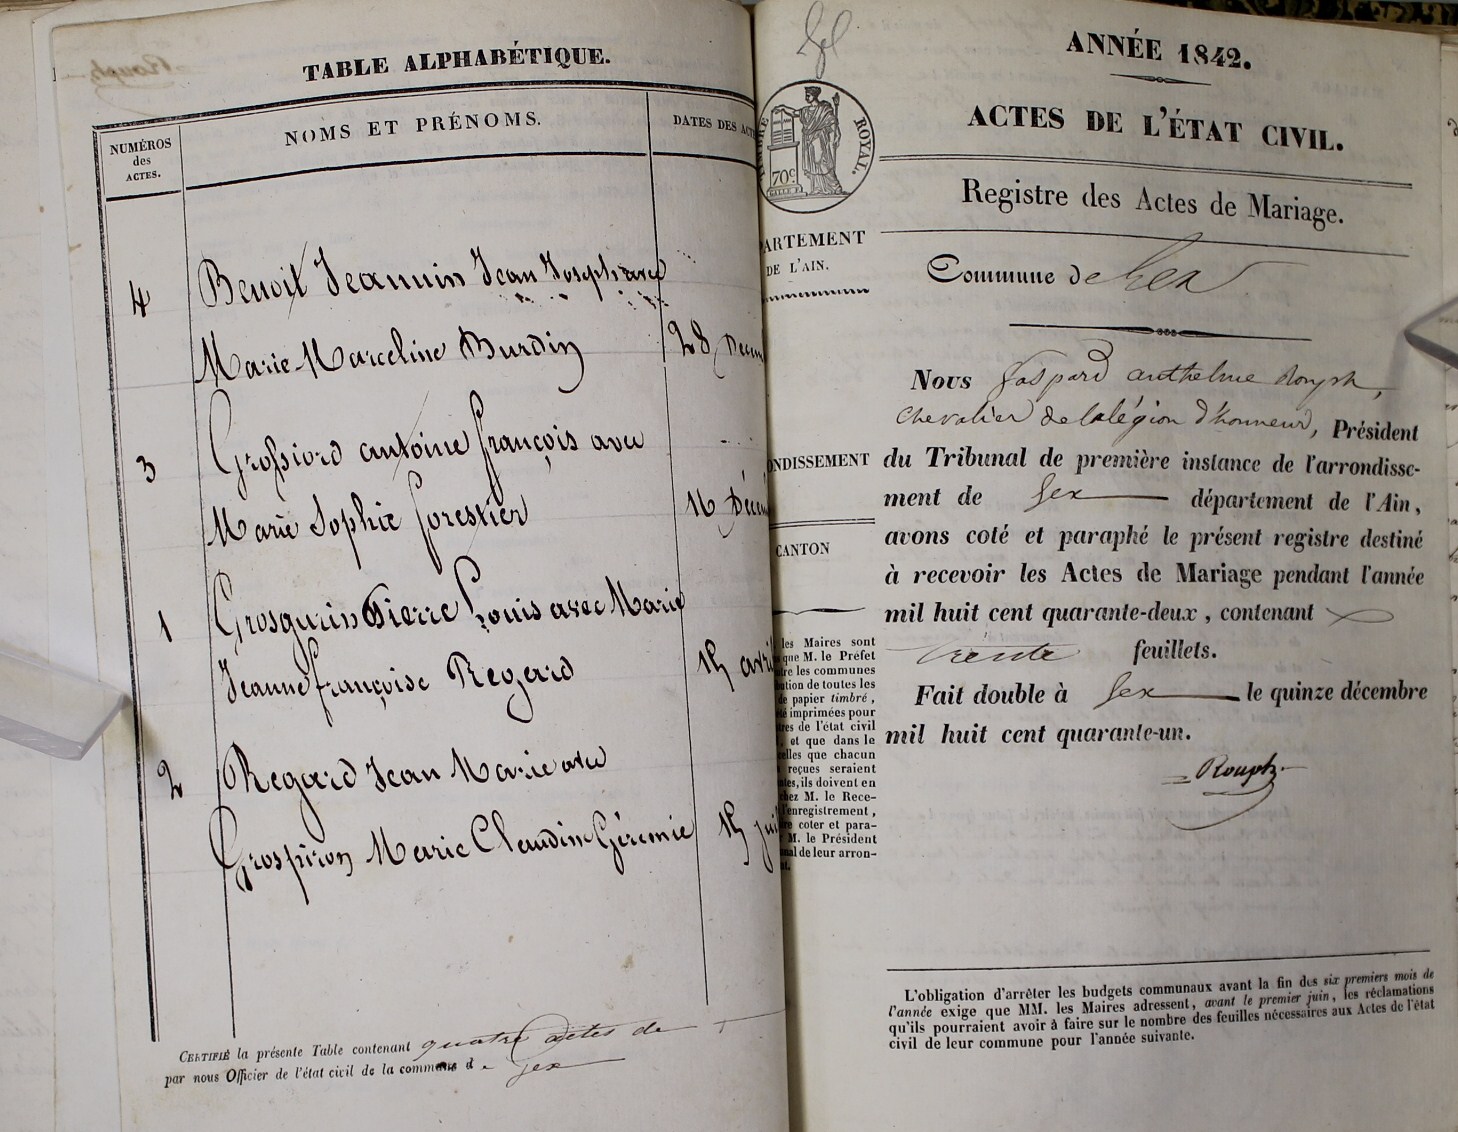 TABLE ALPHABÉTIQUE.
NUMÉROS
des
ACTES.
NOMS ET PRÉNOMS.
DATES DES ACT
4
Benoit Jeannin Jean Joseph avec
Marie Marceline Burdin
28 Décem
3
Grossiord antoine françois avec
Marie Sophie forestier
16 Décem
1
Grosgurin Pierre Louis avec Marie
Jeanne françoise Regard
15 avril
2
Regard Jean Marie avec
Grospiron Marie Claudine Gérémie
15 juil
CERTIFIÉ la présente Table contenant quatre actes de
par nous Officier de l'état civil de la commune de Gex
TIMBRE ROYAL.
70c
ARTEMENT
DE L'AIN.
ONDISSEMENT
CANTON
les Maires sont
que M. le Préfet
re les communes
ution de toutes les
de papier timbré,
té imprimées pour
res de l'état civil
, et que dans le
elles que chacun
reçues seraient
tes, ils doivent en
chez M. le Rece-
l'enregistrement,
re coter et para-
M. le Président
nal de leur arron-
t.
ANNÉE 1842.
ACTES DE L'ÉTAT CIVIL.
Registre des Actes de Mariage.
Commune de Gex
Nous Gaspard anthelme Rouph,
chevalier de la légion d'honneur, Président
du Tribunal de première instance de l'arrondisse-
ment de Gex département de l'Ain,
avons coté et paraphé le présent registre destiné
à recevoir les Actes de Mariage pendant l'année
mil huit cent quarante-deux, contenant
trente feuillets.
Fait double à Gex le quinze décembre
mil huit cent quarante-un.
Rouph
L'obligation d'arrêter les budgets communaux avant la fin des six premiers mois de
l'année exige que MM. les Maires adressent, avant le premier juin, les réclamations
qu'ils pourraient avoir à faire sur le nombre des feuilles nécessaires aux Actes de l'état
civil de leur commune pour l'année suivante.